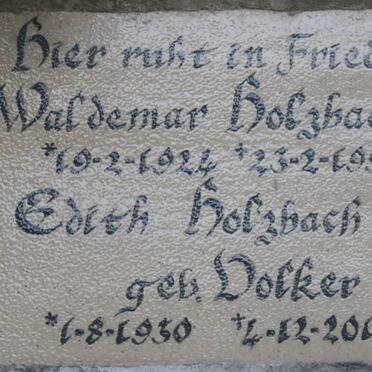 Hier ruht in Fried
Waldemar Holzbac
*19-2-1924 †23-2-19
Edith Holzbach
geb. Volker
*1-8-1930 †4-12-200